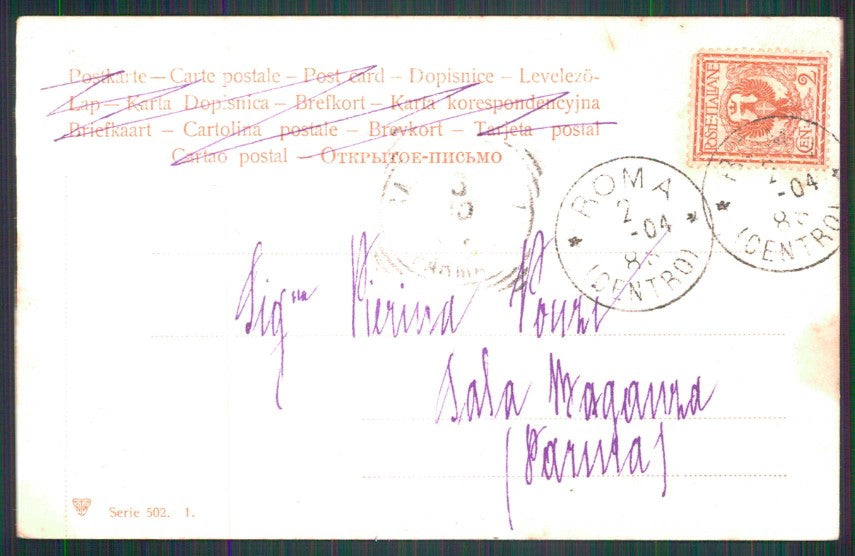 Postkarte — Carte postale — Post card — Dopisnice — Levelező-
Lap — Karta Dopisnica — Brefkort — Karta korespondencyjna
Briefkaart — Cartolina postale — Brevkort — Tarjeta postal
Cartão postal — Открытое-письмо
POSTE·ITALIANE
CENT. 2
ROMA
2
-04
(CENTRO)
2
-04
(CENTRO)
Sig.na Pierina Ponzi
Sala Baganza
(Parma)
Serie 502. 1.